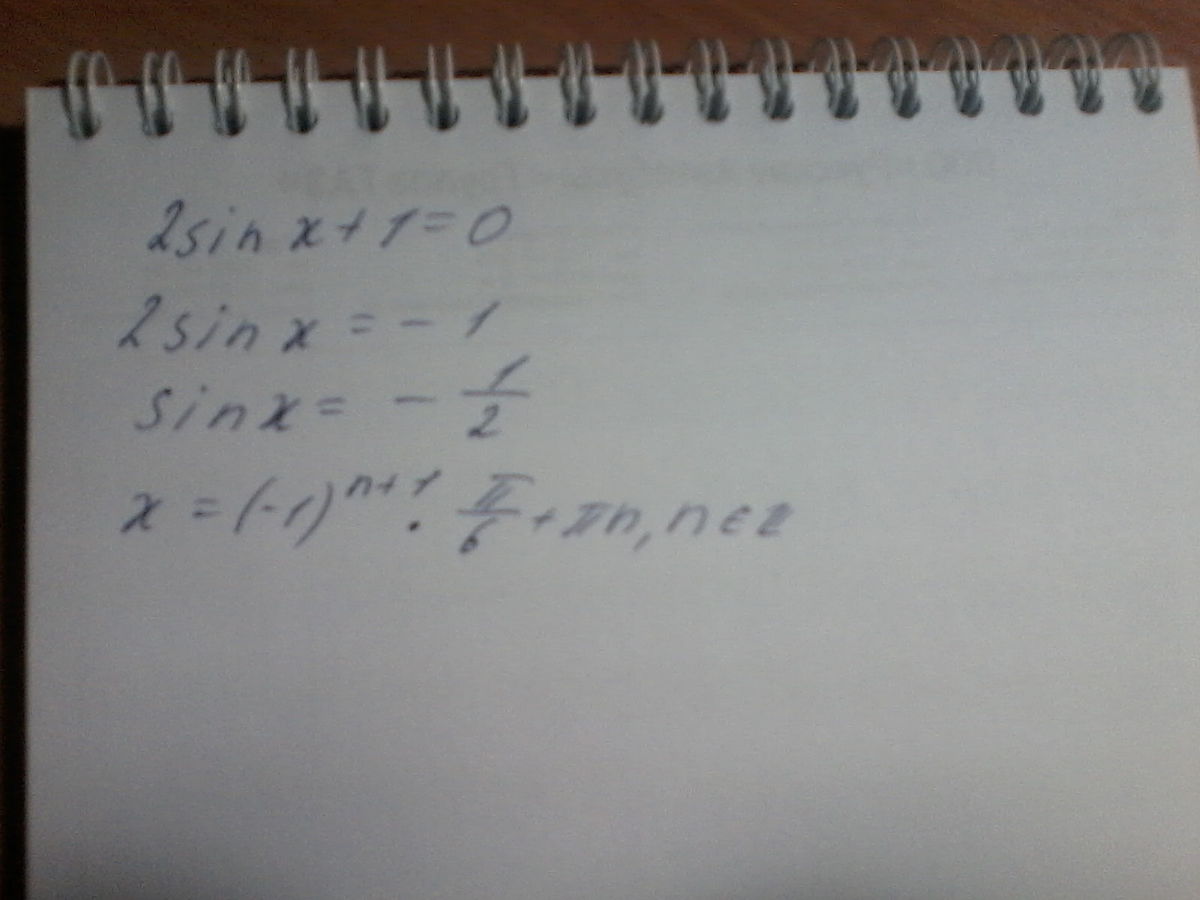 2sin x + 1 = 0
2sin x = - 1
sin x = - 1/2
x = (-1)^{n+1} · π/6 + πn, n ∈ z